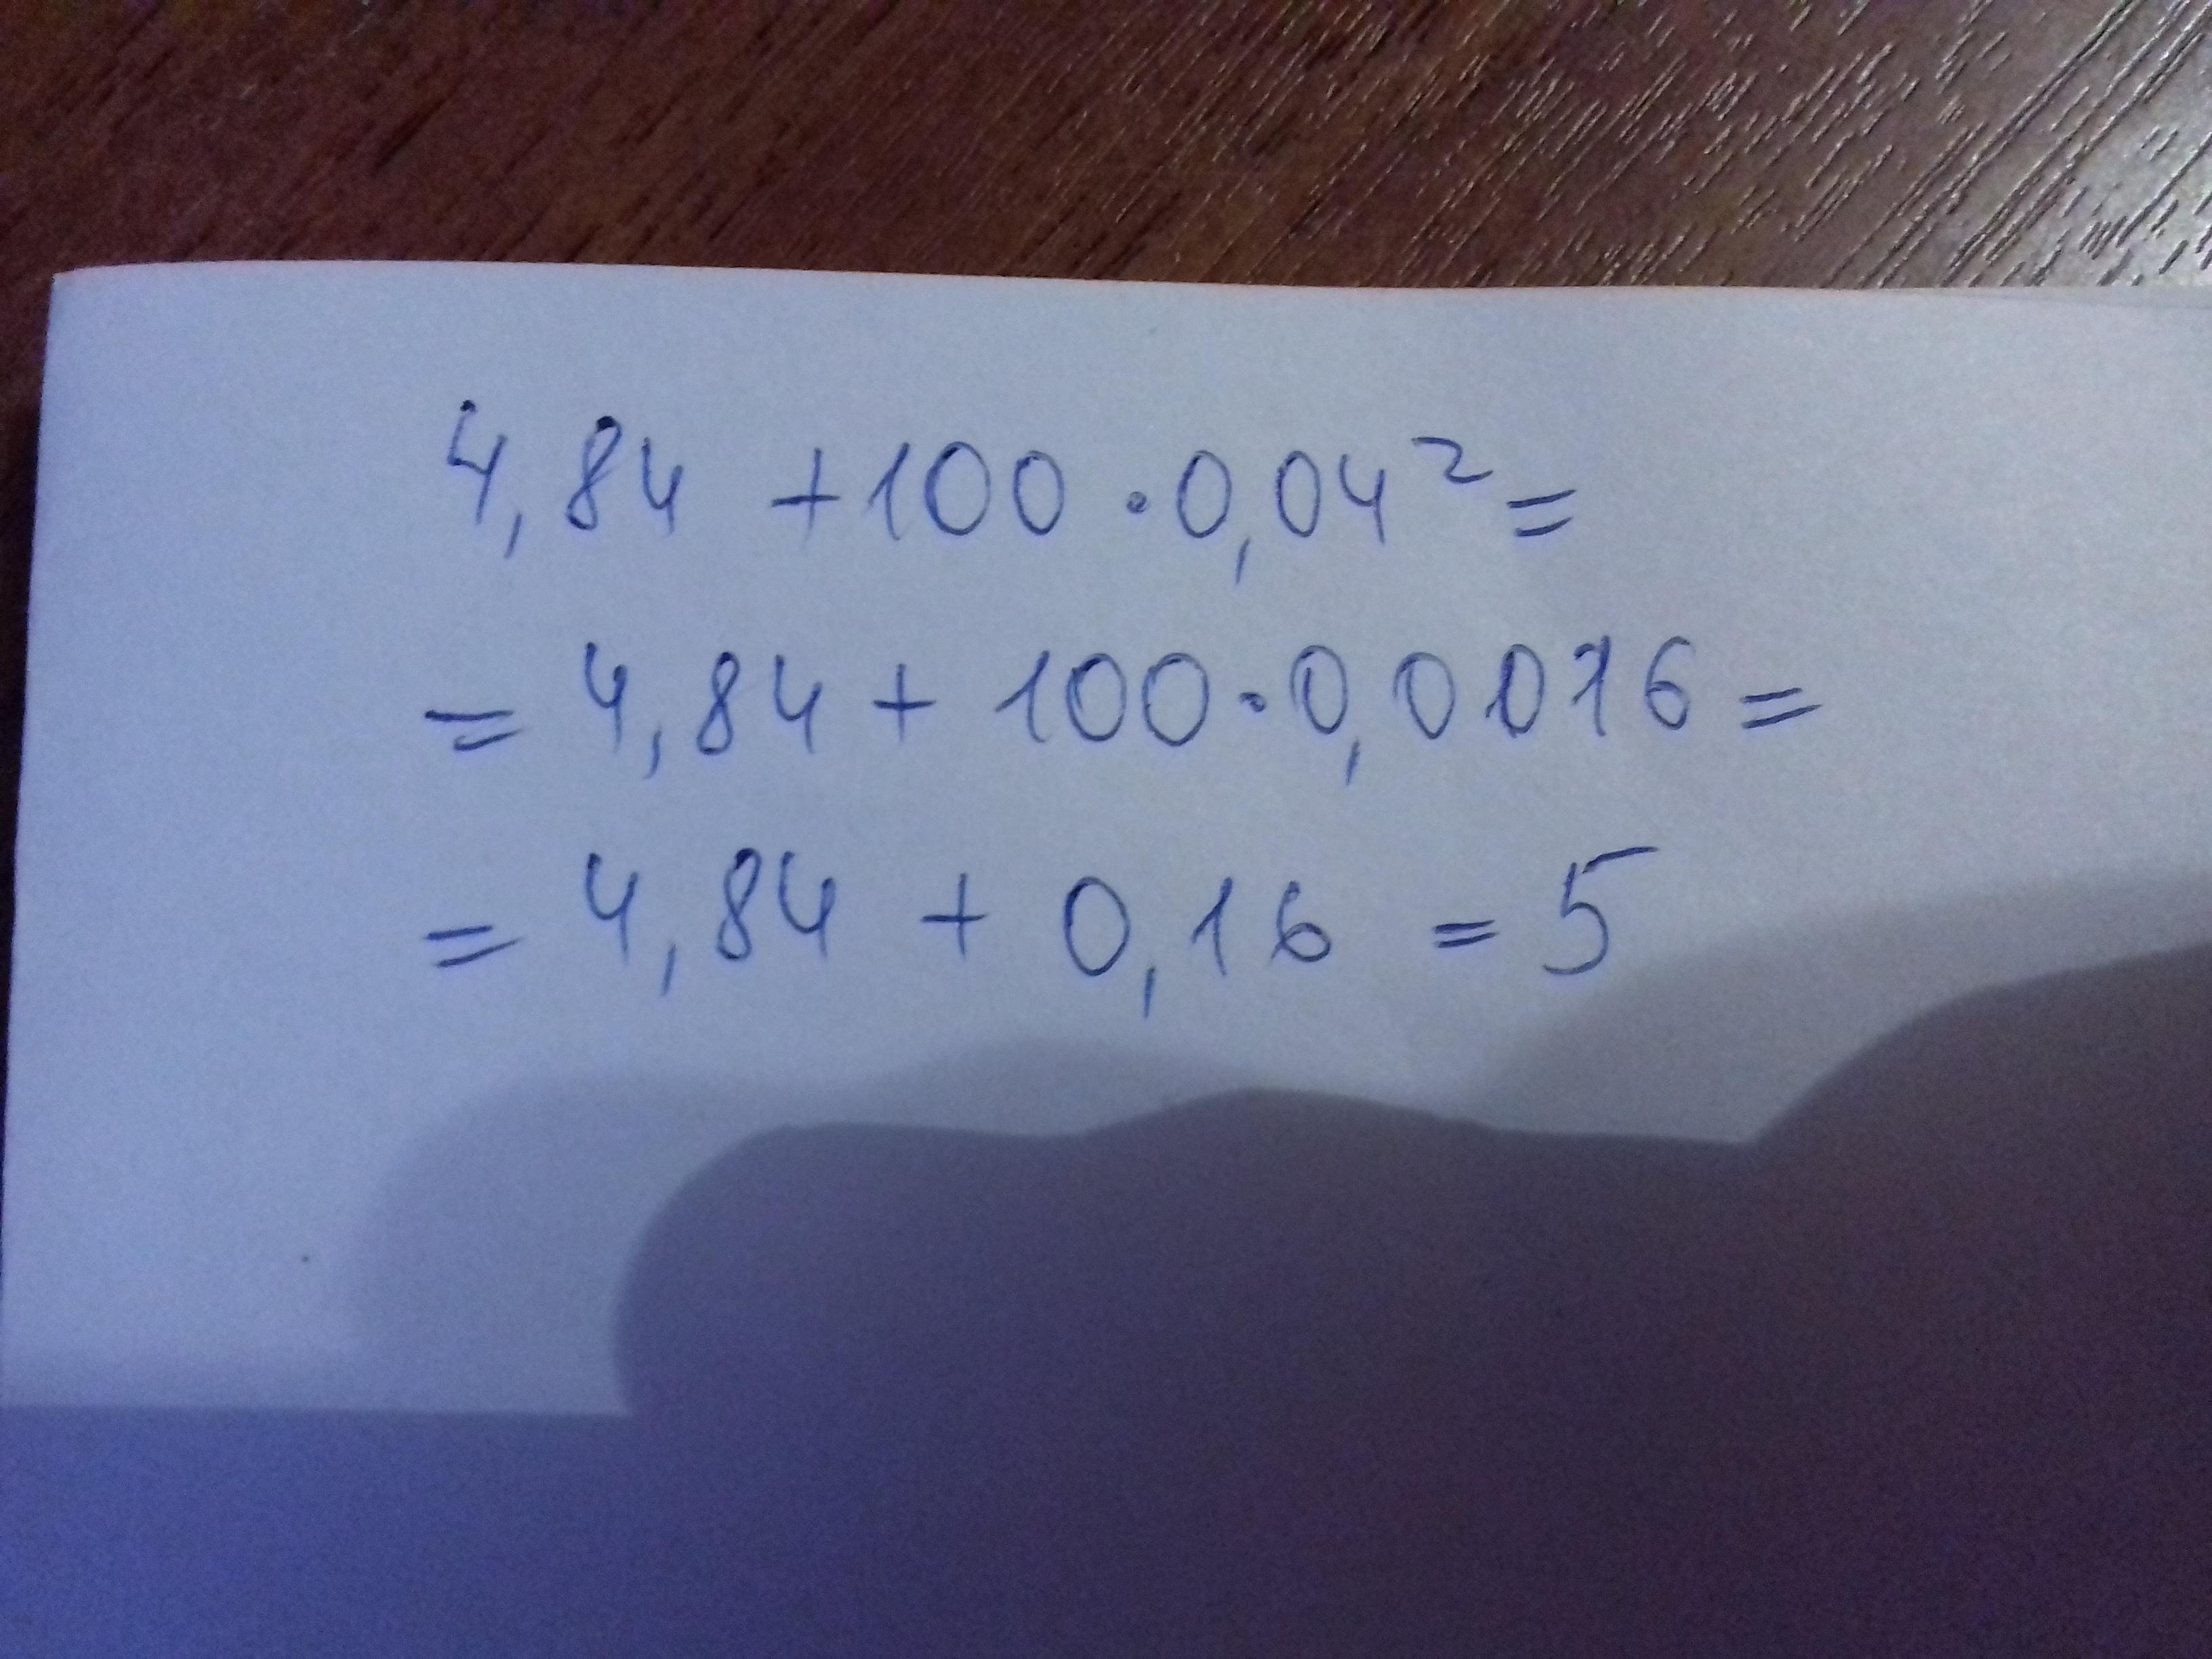 4,84 + 100 · 0,04² =
= 4,84 + 100 · 0,0016 =
= 4,84 + 0,16 = 5